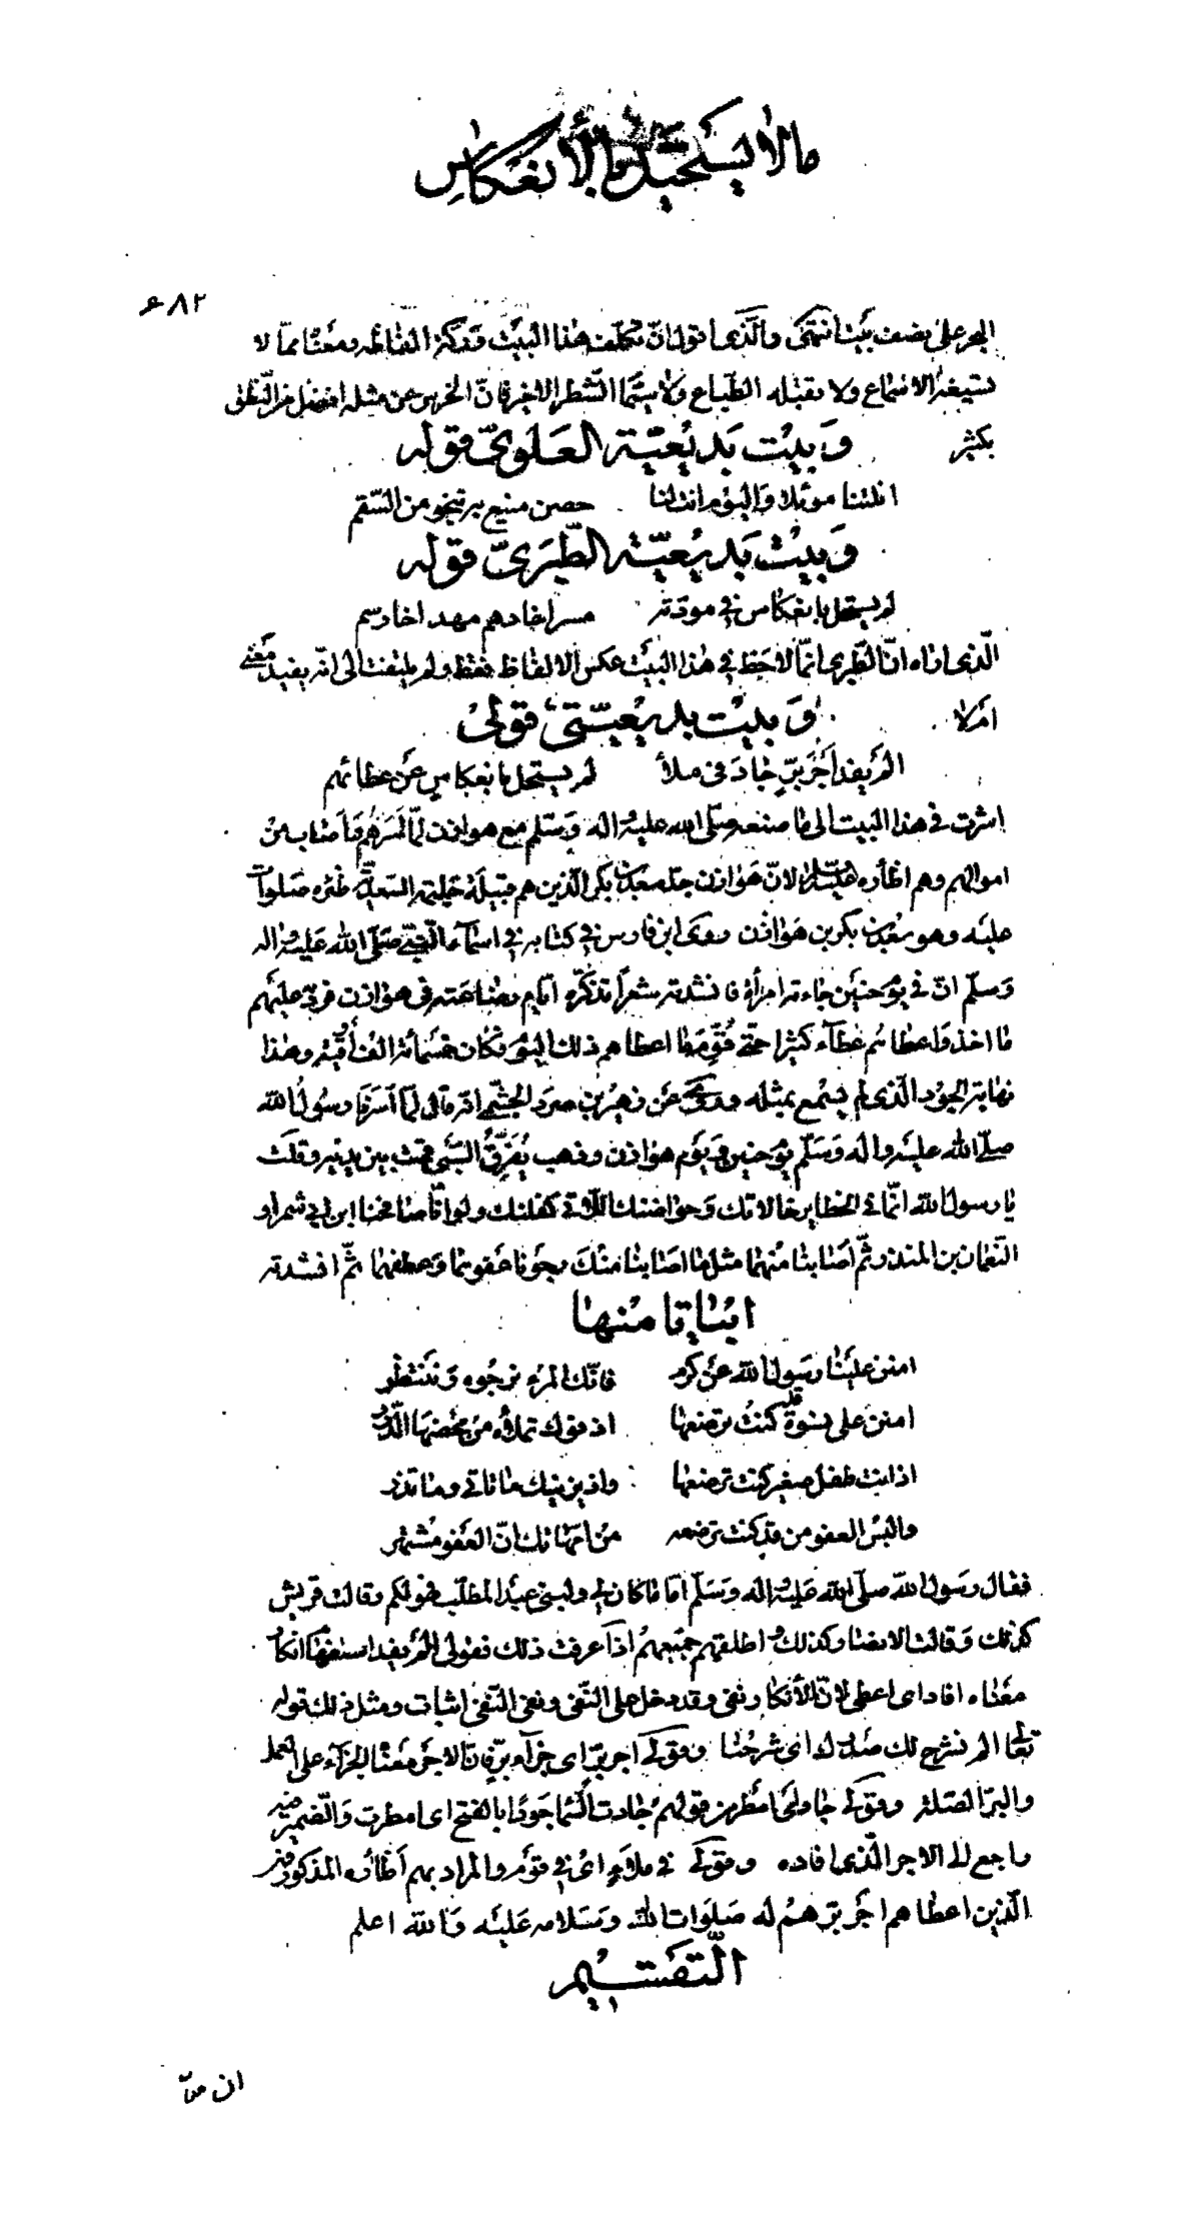 ما لا يستحيل بالانعكاس
٦٨٢
البحر على نصف بيت انتهى والذى اقول ان تكلف هذا البيت وتركة الفاظه ومعناه مما لا
تستيغه الاسماع ولا تقبله الطباع ولا سيما الشطر الاخير فان الخرس عن مثله افضل من النطق
بكثير
وبيت بديعية العلوى قوله
انلتنا موئلا واليوم انت لنا حصن منيع به ننجو من السقم
وبيت بديعية الطبرى قوله
لم يستحل بانعكاس فى مودته مسر اخادهم مهد اخا رسم
الذى اراه ان الطبرى انما لاحظ فى هذا البيت عكس الالفاظ فقط ولم يلتفت الى انه يفيد معنى
ام لا
وبيت بديعيتى قولى
الم يفد اجر بر جاد فى ملأ لم يستحل بانعكاس عن عطائهم
اشرت فى هذا البيت الى ما صنعه صلى الله عليه واله وسلم مع هوازن لما اسرهم واصاب من
اموالهم وهم اظآره لان هوازن جد سعد بن بكر الذين هم قبيلة حليمة السعدية ظئره صلوات
عليه وهو سعد بن بكر بن هوازن روى ابن فارس فى كتابه فى اسماء النبى صلى الله عليه واله
وسلم ان فى يوم حنين جاءته امرأة فانشدته شعرا تذكره ايام رضاعته فى هوازن فرد عليهم
ما اخذ واعطاهم عطاء كثيرا حتى قوم ما اعطاهم ذلك اليوم فكان خمسمائة الف اوقية وهذا
نهاية الجود الذى لم يسمع بمثله وروى عن زهير بن صرد الجشمى انه قال لما اسرنا رسول الله
صلى الله عليه واله وسلم يوم حنين يوم هوازن وذهب يفرق السبى قمت بين يديه وقلت
يا رسول الله انما فى الحظاير خالاتك وحواضنك اللاتى كفلنك ولو انا مالحنا ابن ابى شمر او
النعمان بن المنذر ثم اصابنا منهما مثل ما اصابنا منك رجونا عفوهما وعطفهما ثم انشدته
ابياتا منها
امنن علينا رسول الله عن كرم فانك المرء نرجوه وننتظر
امنن على نسوة قد كنت ترضعها اذ فوك تملاه من محضها الدرر
اذ انت طفل صغير كنت ترضعها واذ يزينك ما تاتى وما تذر
والبس العفو من قد كنت ترضعه من امهاتك ان العفو مشتهر
فقال رسول الله صلى الله عليه واله وسلم اما ما كان لى ولبنى عبد المطلب فهو لكم وقالت قريش
كذلك وقالت الانصار كذلك اطلقهم جميعهم اذا عرفت ذلك فقولى الم يفد استفهام انكار
معناه افاد اى اعطى لان الانكار نفى وقد دخل على النفى ونفى النفى اثبات ومثل ذلك قوله
تعالى الم نشرح لك صدرك اى شرحنا وقولى اجر بر اى جزآء بر فان الاجر معناه الجزاء على العمل
والبر الصلة وقولى جاد اى امطر من قولهم جادت السما جودا بالفتح اى امطرت والضمير فيه
راجع الى الاجر الذى افاده وقولى فى ملاء اى فى قوم والمراد بهم اظآره المذكورين
الذين اعطاهم اجر برهم له صلوات الله وسلامه عليه والله اعلم
التقسيم